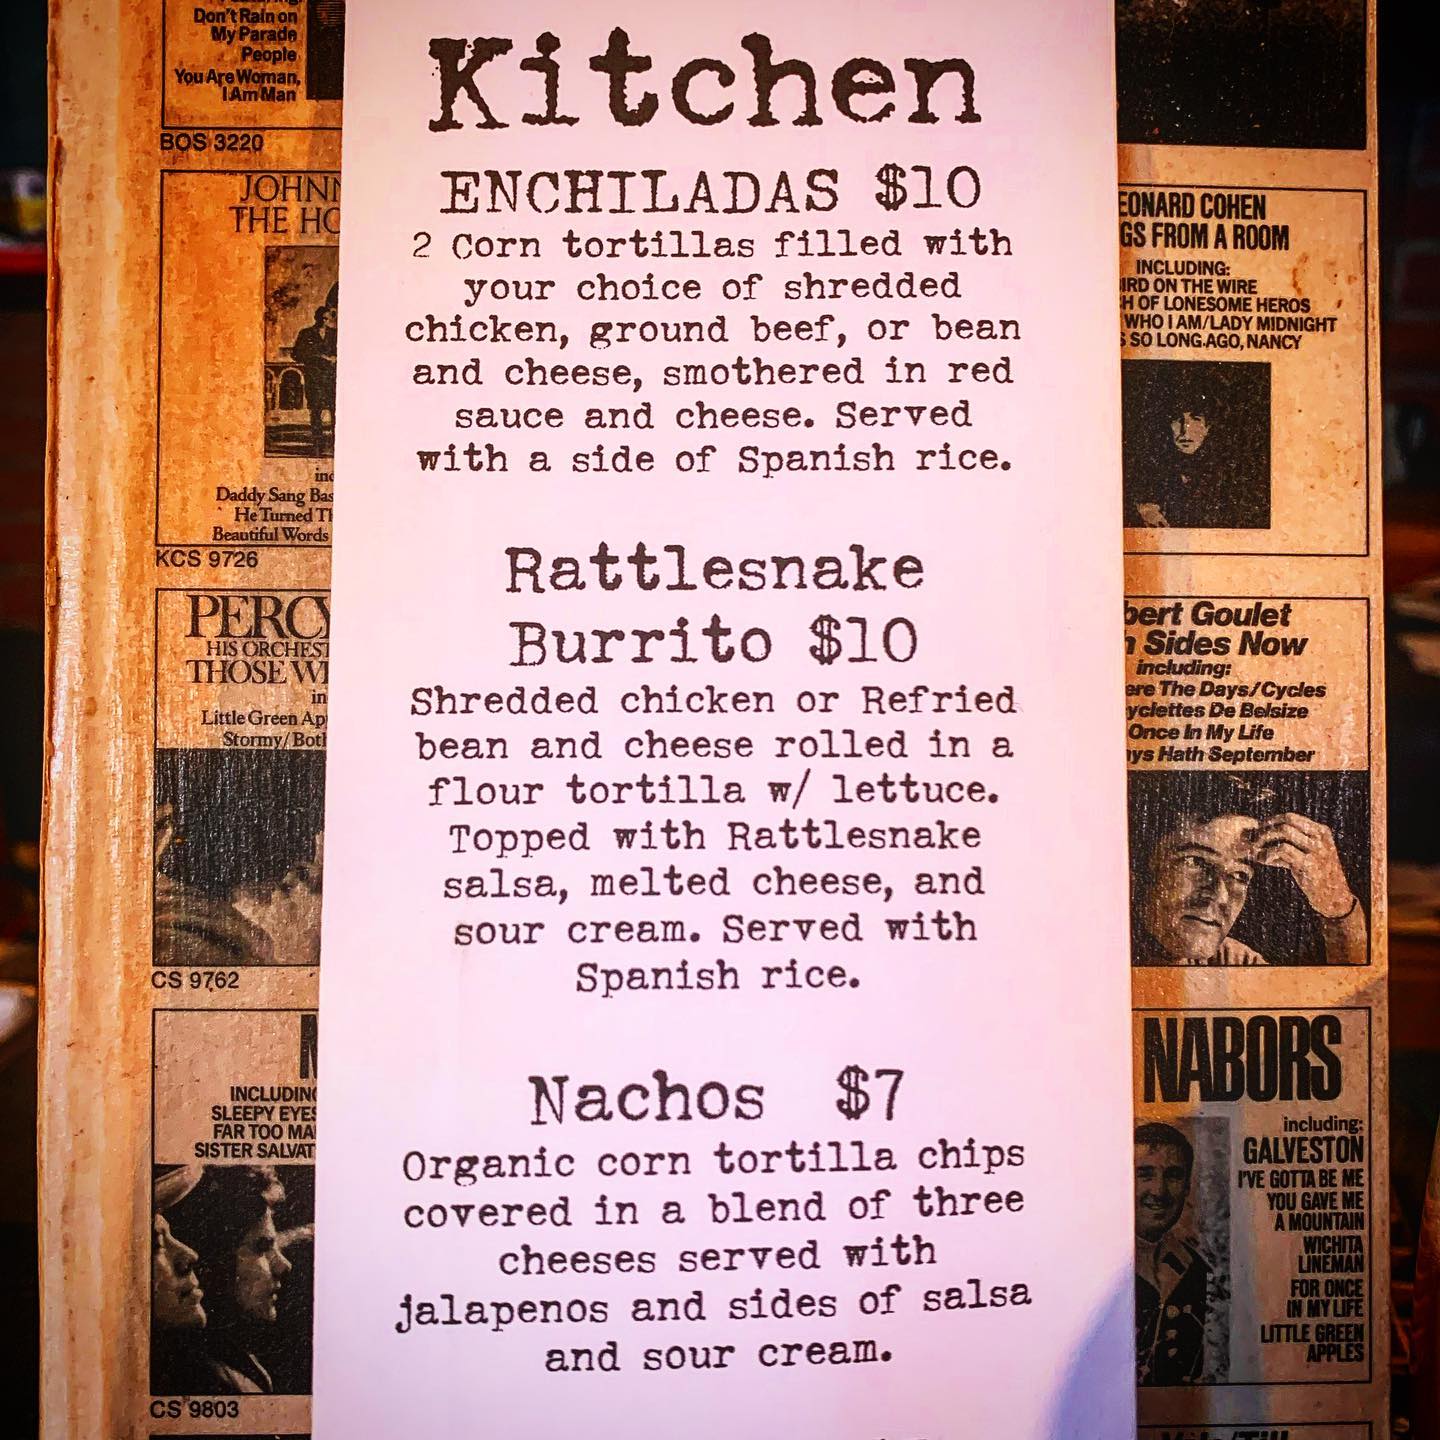 Don't Rain on
My Parade
People
You Are Woman,
I Am Man
BOS 3220
JOHNN
THE HO
Daddy Sang Bas
He Turned Th
Beautiful Words
KCS 9726
PERCY
HIS ORCHEST
THOSE WE
in
Little Green Ap
Stormy/Both
CS 9762
INCLUDING
SLEEPY EYES
FAR TOO MA
SISTER SALVAT
CS 9803
Kitchen
ENCHILADAS $10
2 Corn tortillas filled with
your choice of shredded
chicken, ground beef, or bean
and cheese, smothered in red
sauce and cheese. Served
with a side of Spanish rice.
Rattlesnake
Burrito $10
Shredded chicken or Refried
bean and cheese rolled in a
flour tortilla w/ lettuce.
Topped with Rattlesnake
salsa, melted cheese, and
sour cream. Served with
Spanish rice.
Nachos $7
Organic corn tortilla chips
covered in a blend of three
cheeses served with
jalapenos and sides of salsa
and sour cream.
EONARD COHEN
GS FROM A ROOM
INCLUDING:
IRD ON THE WIRE
H OF LONESOME HEROS
WHO I AM/LADY MIDNIGHT
S SO LONG AGO, NANCY
bert Goulet
h Sides Now
including:
ere The Days/Cycles
yclettes De Belsize
Once In My Life
ys Hath September
NABORS
including:
GALVESTON
I'VE GOTTA BE ME
YOU GAVE ME
A MOUNTAIN
WICHITA
LINEMAN
FOR ONCE
IN MY LIFE
LITTLE GREEN
APPLES